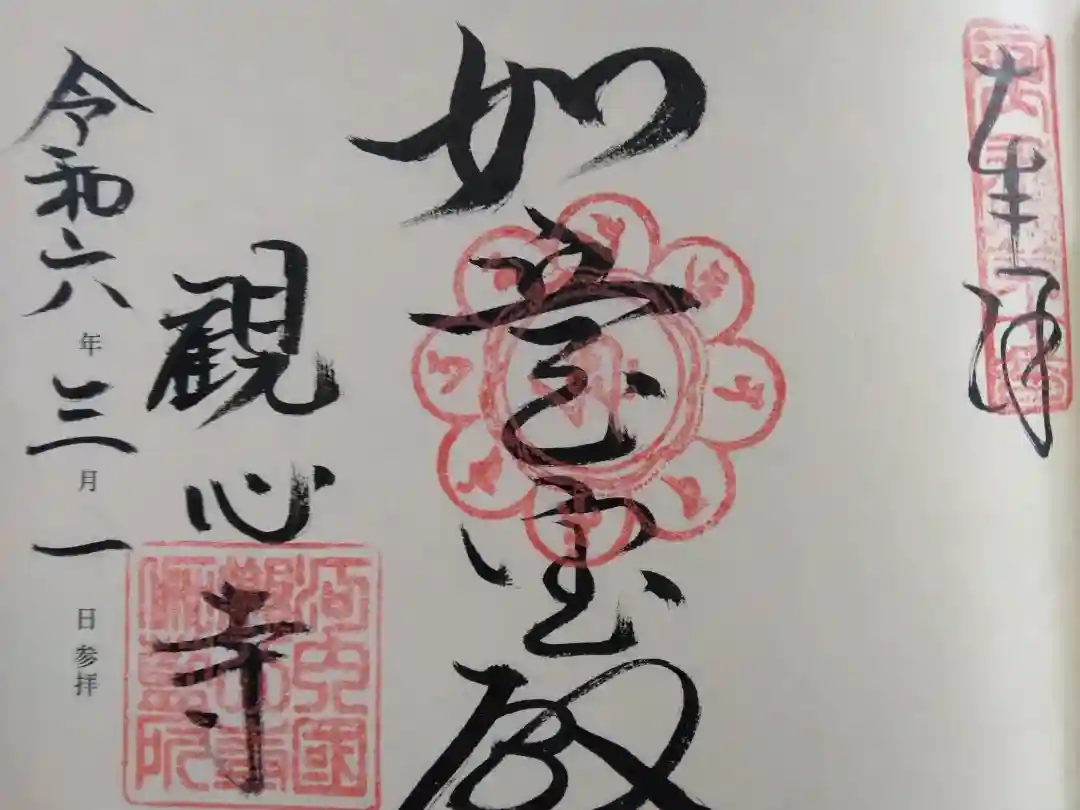 奉拝
如意宝殿
観心寺
令和六年三月一日参拝